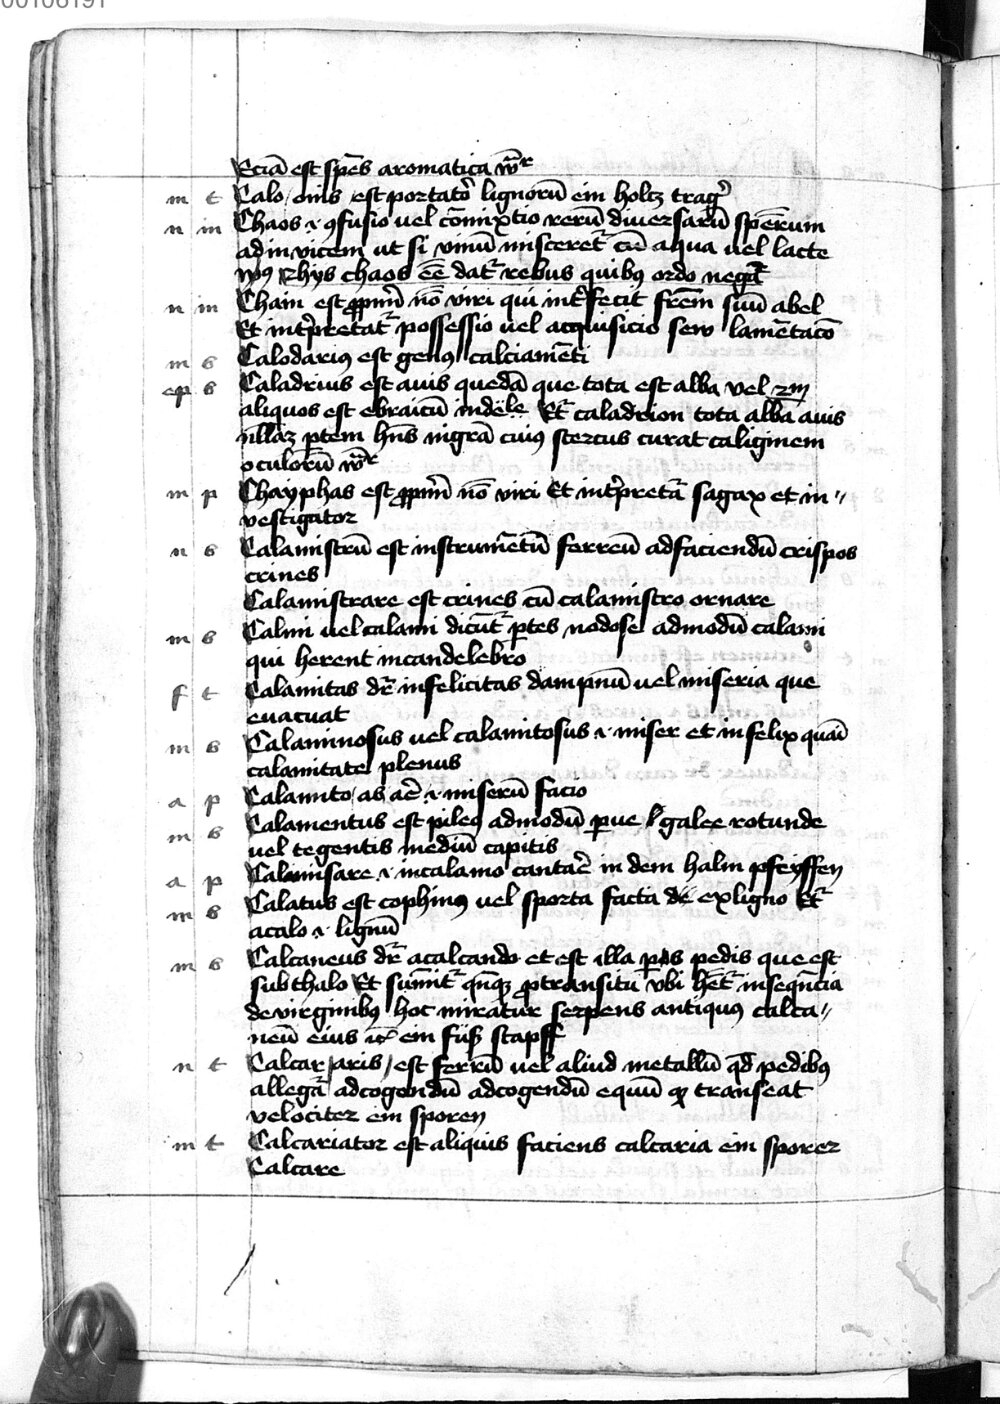 00106191
Eciā est spēs aromatica
m t Calo onis est portator lignorū ein holtz trag͛
n m Chaos ⁊ ꝯfusio uel cōmixtio rerū diuersarū spērum
ad invicem ut si vinū misceret͛ cū aqua uel lacte
chaos ēē dat͛ rebus quibus ordo negat͛
n m Cham est ꝓpriū nō viri qui int͛fecit frēm suū abel
Et int͛pretat͛ possessio uel acquisicio sew lamētacō
m s Calodariꝰ est genꝰ calciamēti
ep s Caladrius est auis quedā que tota est alba vel 2m
aliquos est ebraicū indēle Et͛ caladrion tota alba auis
nullaꝫ ꝑtem hn̄s nigrā cuiꝰ stercus curat caliginem
oculorū
m p Chayphas est ꝓpriū nō viri Et int͛pretat͛ sagax et in〃
vestigator
n s Calamistrū est instrumētū ferreū ad faciendū crispos
crines
Calamistrare est crines cū calamistro ornare
m s Calmi uel calami dicūt͛ ꝑtes nodose ad modū calami
qui herent in candelebro
f t Calamitas dr̄ infelicitas dampnū uel miseria que
euacuat
m s Calaminosus uel calamitosus ⁊ miser et infelix quasi
calamitate plenus
a p Calamito as are ⁊ miserū facio
m s Calamentus est pileꝰ ad modū ꝑue galee rotunde
uel tegentis mediū capitis
a p Calamisare ⁊ in calamo cantare in dem halm pfeyffen
m s Calatus est cophinꝰ uel sporta facta de ex ligno Et͛
a calo ⁊ lignū
m s Calcaneus dr̄ a calcando et est illa pars pedis que est
sub thalo Et sumit͛ qn̄qꝫ ꝓ transitu vbi het͛ in sequencia
de virginibꝰ hoc miratur serpens antiquꝰ calca〃
neū eius ein fuß stapff
n t Calcar aris est ferrū uel aliud metallū qd pedibꝰ
allegat͛ ad cogendū ad cogendū equū ꝙ transeat
velociter ein sporen
m t Calcariator est aliquis faciens calcaria ein sporer
Calcare